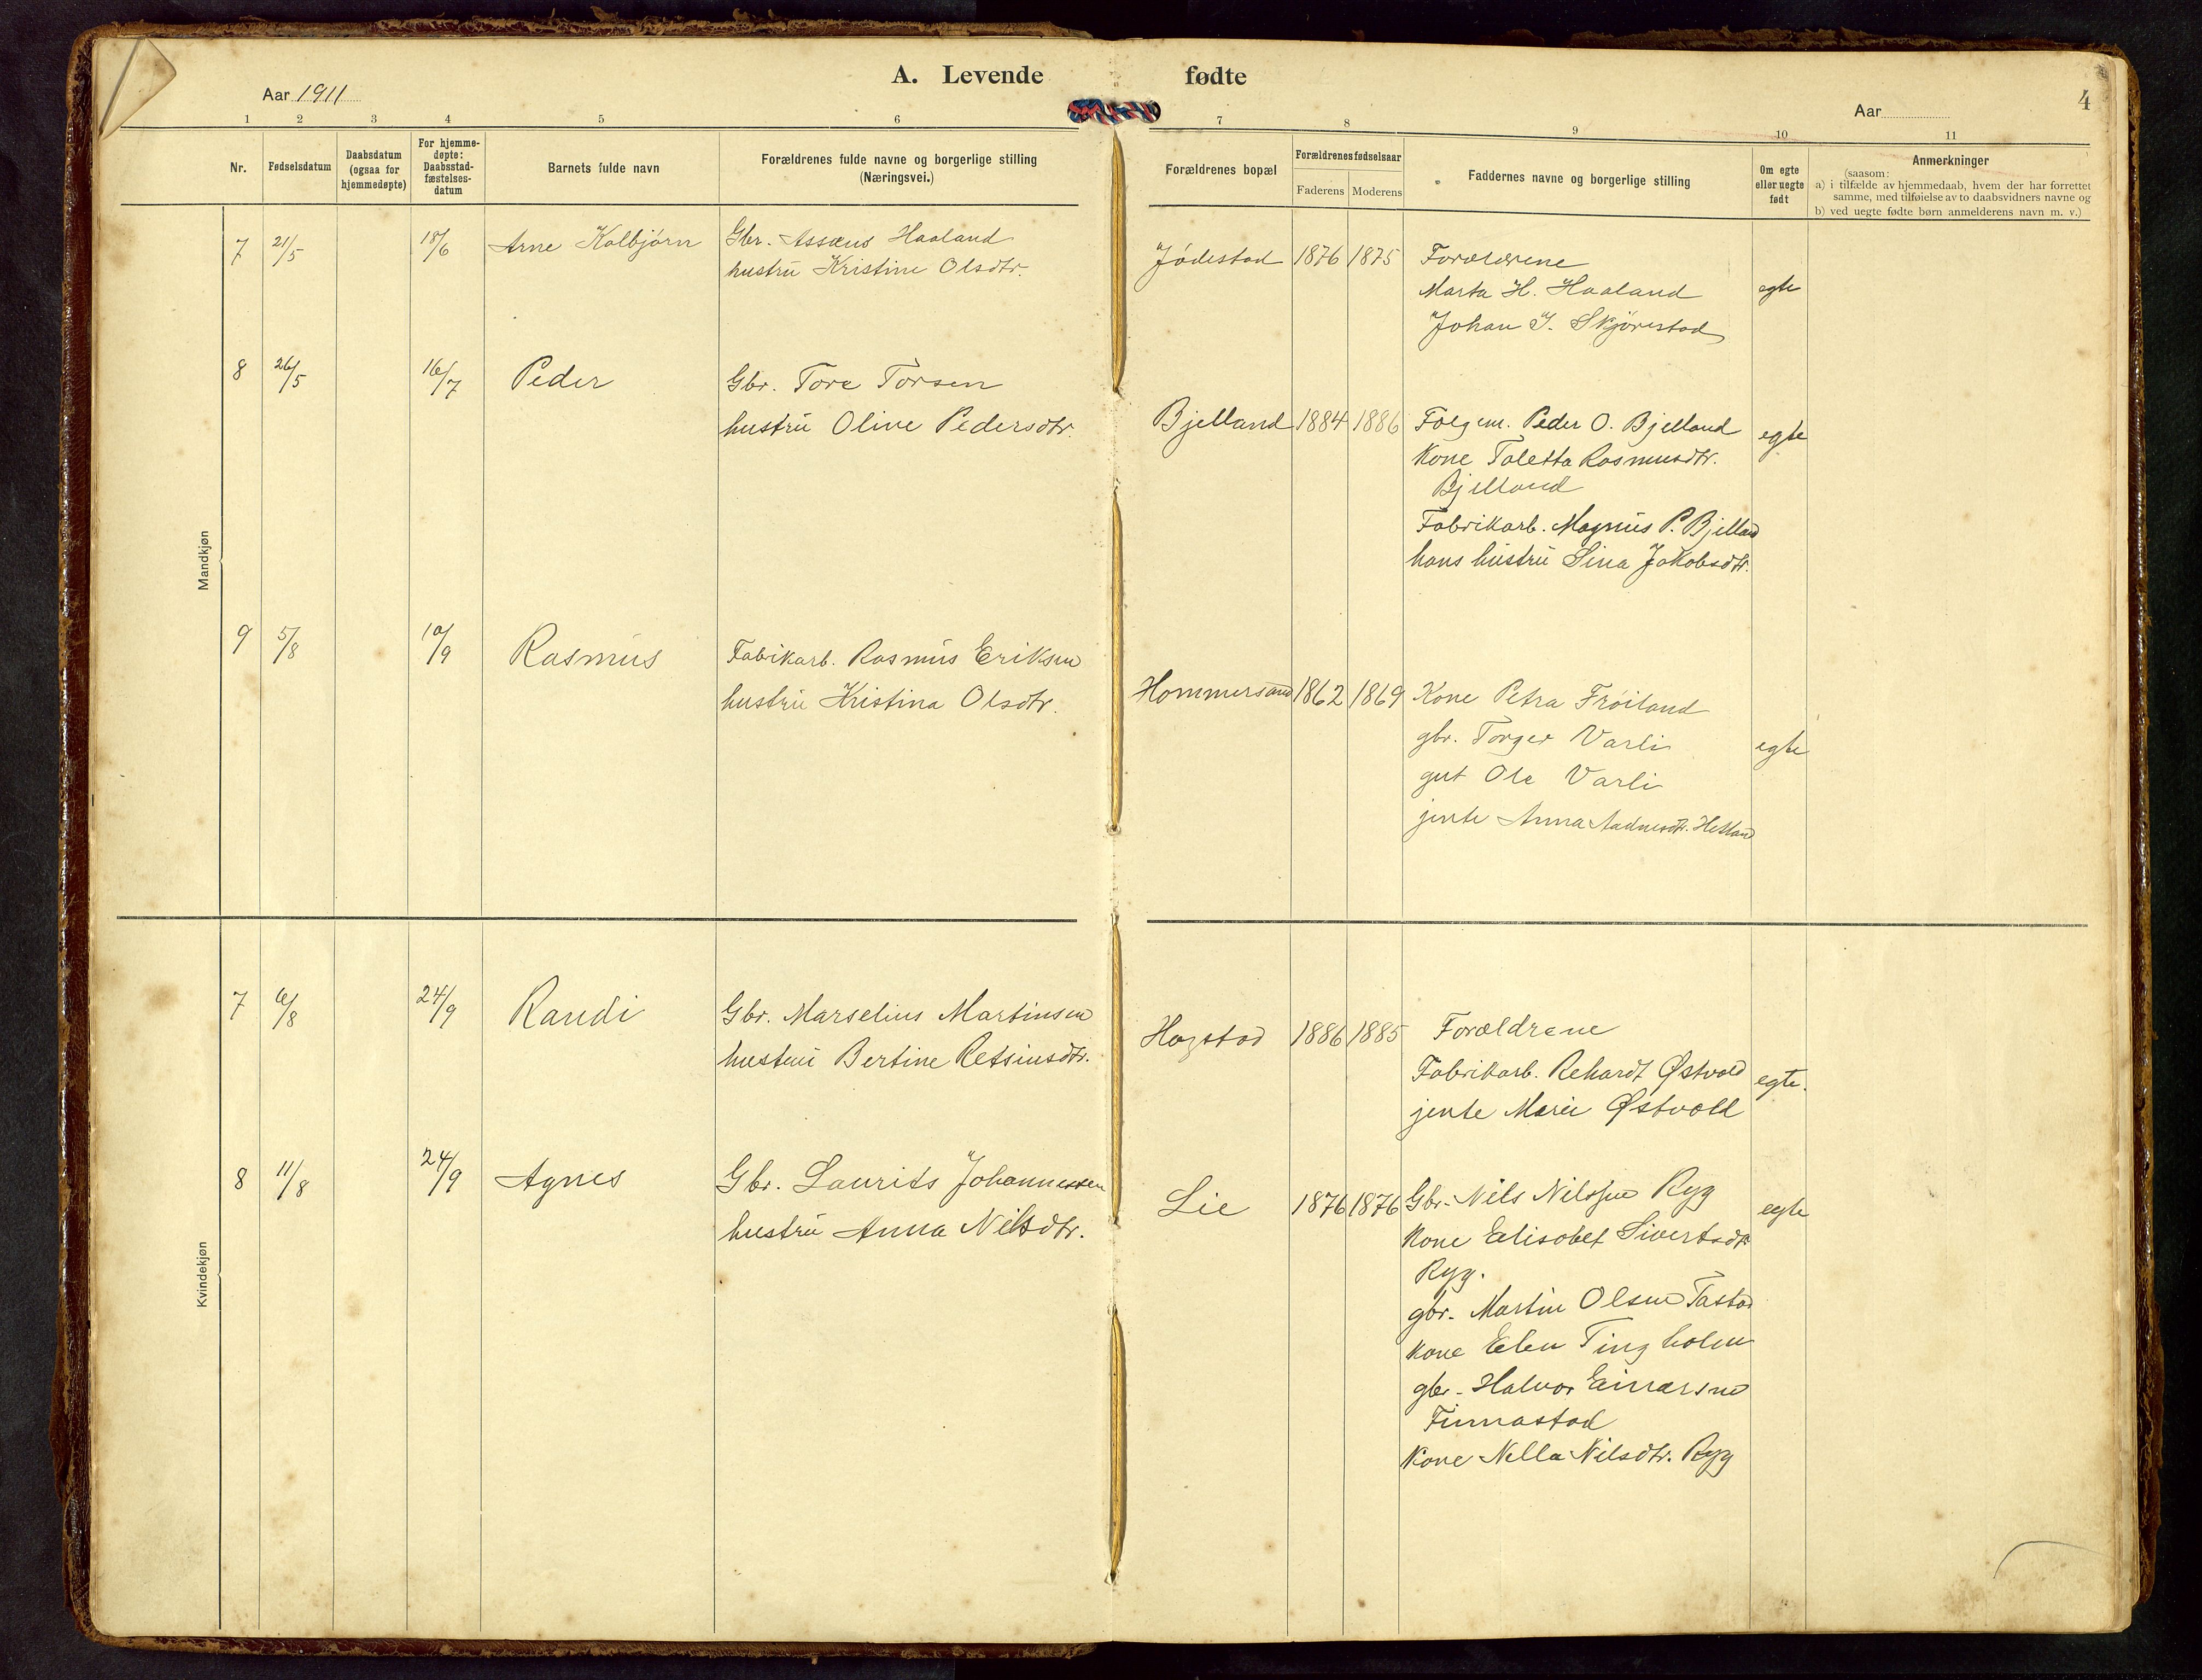 A. Levende fødte
Aar 1911
Aar
4
1 2 3 4 5 6 7 8 9 10 11
Nr.
Fødselsdatum
Daabsdatum
(ogsaa for
hjemmedøpte)
For hjemme-
døpte:
Daabsstad-
fæstelses-
datum
Barnets fulde navn
Forældrenes fulde navne og borgerlige stilling
(Næringsvei.)
Forældrenes bopæl
Forældrenes fødselsaar
Faderens Moderens
Faddernes navne og borgerlige stilling
Om egte
eller uegte
født
Anmerkninger
(saasom:
a) i tilfælde av hjemmedaab, hvem der har forrettet
samme, med tilføielse av to daabsvidners navne og
b) ved uegte fødte børn anmelderens navn m. v.)
Mandkjøn
7 21/5 18/6 Arne Kolbjørn Gbr. Assæus Haaland
hustru Kristine Olsdtr.
Jødestad 1876 1875 Forældrene
Marta H. Haaland egte
Johan J. Skjørestad
8 26/5 16/7 Peder Gbr. Tore Torsen
hustru Olive Pedersdtr.
Bjelland 1884 1886 Følgem. Peder O. Bjelland egte
Kone Taletta Rasmusdtr.
Bjelland
Fabrikarb. Magnus P. Bjelland
hans hustru Sina Jakobsdtr.
9 5/8 10/9 Rasmus Fabikarb. Rasmus Eriksen
hustru Kristina Olsdtr.
Hommersand 1862 1869 Kone Petra Frøiland
gbr. Torger Varli egte
gut Ole Varli
jente Anna Aadnesdtr. Hetland
Kvindekjøn
7 6/8 24/9 Randi Gbr. Marselius Martinsen
hustru Bertine Retsiusdtr.
Hogstad 1886 1885 Forældrene
Fabrikarb. Rehardt Østvold egte.
jente Marie Østvold
8 11/8 24/9 Agnes Gbr. Laurits Johannessen
hustru Anna Nilsdtr.
Lie 1876 1876 Gbr. Nils Nilssen Ryg egte
Kone Elisabet Sivertsdtr
Ryg.
gbr. Martin Olsen Tastad
kone Elen Tingholm
gbr. Halvor Einarsen
Finnastad
Kone Nella Nilsdtr. Ryg